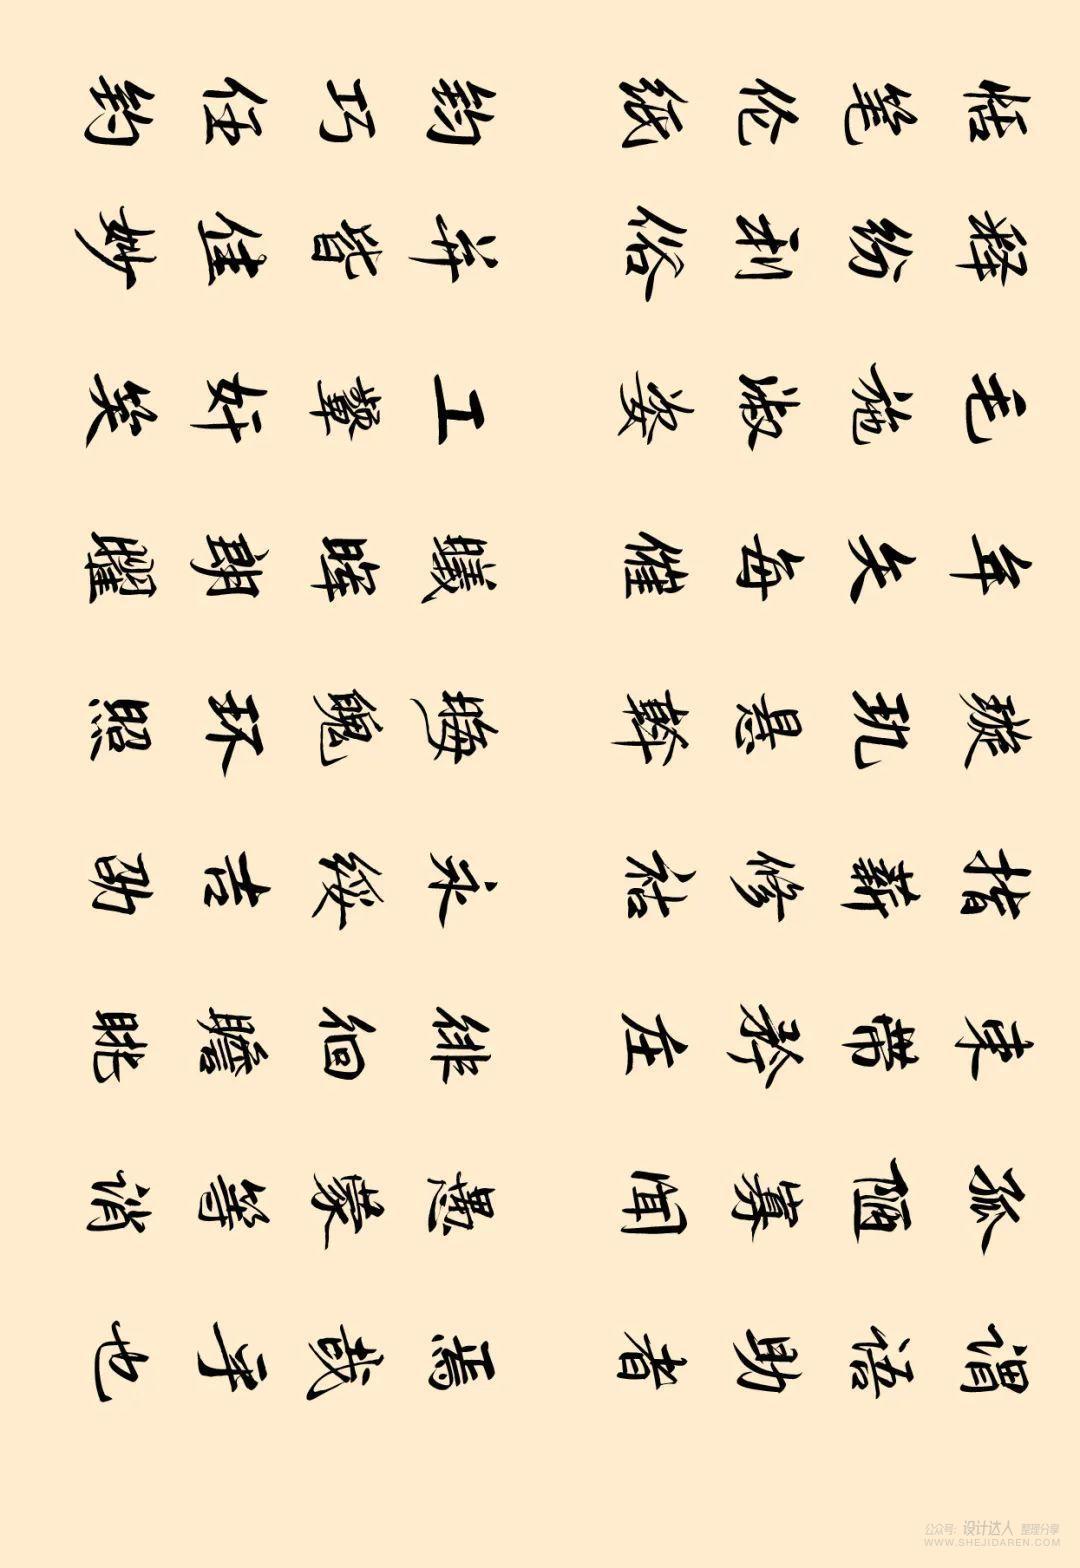 恬笔伦纸钧巧任钓
释纷利俗并皆佳妙
毛施淑姿工颦妍笑
年矢每催曦晖朗曜
璇玑悬斡晦魄环照
指薪修祜永绥吉劭
束带矜庄徘徊瞻眺
孤陋寡闻愚蒙等诮
谓语助者焉哉乎也
公众号: 设计达人 整理分享
WWW.SHEJIDAREN.COM